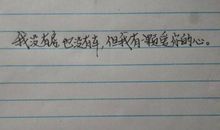 我没有房也没有车，但我有颗爱你的心。